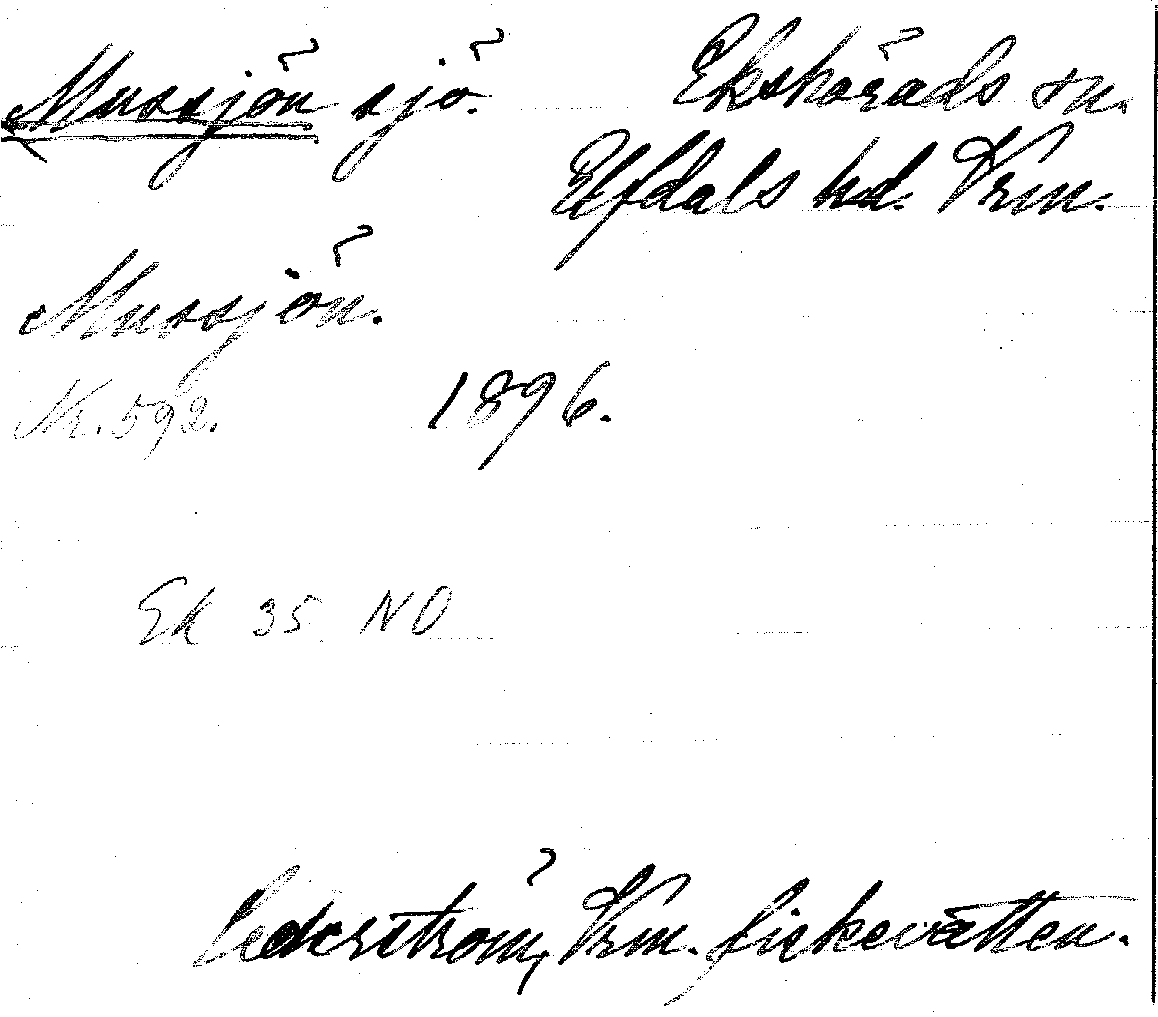 Mussjön sjö. Ekshärads sn.
Elfdals hd. Vrm.
Mussjön.
Nr. 592. 1896.
Ek 35 NO
Cederström, Vrm. fiskevatten.